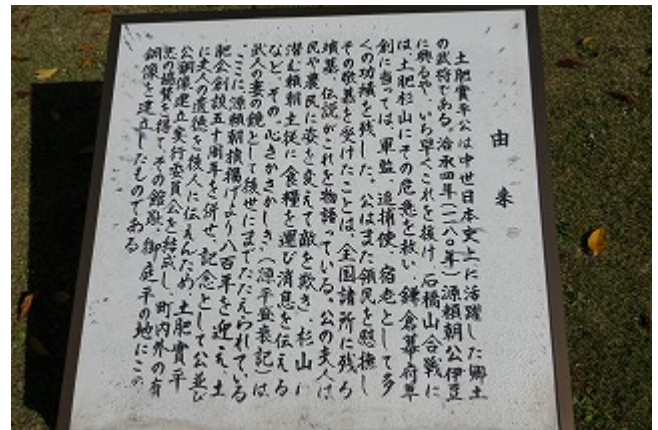 由来
土肥實平公は中世日本史上に活躍した郷土
の武将である。治承四年(一一八〇年)源頼朝公伊豆
に興るや、いち早くこれを援け、石橋山合戦に
は、土肥杉山にその危急を救い、鎌倉幕府草
創に当っては、軍監、追捕使、宿老として多
くの功績を残した。公はまた領民を慰撫し
その敬慕を受けたことは、全国諸所に残る
墳墓、伝説がこれを物語っている。公の夫人は
民や農民に姿を変えて敵を欺き、杉山に
潜む頼朝主従に食糧を運び消息を伝える
など、その「心さかさかしき」(源平盛衰記)は
武人の妻の鏡として後世にまでたたえられている
ここに源頼朝旗揚げより八百年を迎え、土
肥会創設五十周年を併せ、記念として公並び
に夫人の遺徳を後人に伝えんため、土肥實平
公銅像建立実行委員会を結成し、町内外の有
志の協賛を得て、その館趾、御庭平の地にこの
銅像を建立したものである